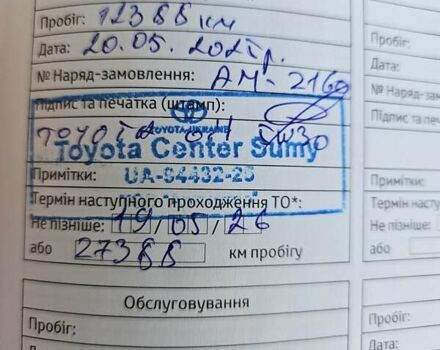 Пробіг: 12388 км
Дата: 20.05.2025р.
№ Наряд-замовлення: АМ-2160
Підпис та печатка (штамп):
TOYOTA UKRAINE
тойота
Toyota Center Sumy
UA-84432-25
Примітки:
Термін наступного проходження ТО*:
Не пізніше: 19/05/26
або 27388 км пробігу
Обслуговування
Пробіг:
Дата:
Пробіг:
Дата:
№ Наряд-замовл
Підпис та печа
Примітки:
Термін наступ
Не пізніше:
або
Пробіг:
Дата: